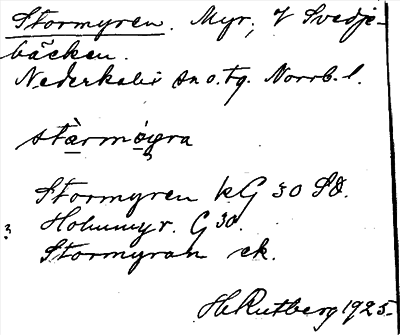 Stormyren. Myr, V Svedje-
bäcken.
Nederkalix sn o. tg. Norrb. l.
stàrmøyra
Stormyren kG 30 SO.
? Holmmyr. G 30.
Stormyran ek.
H Rutberg 1925.